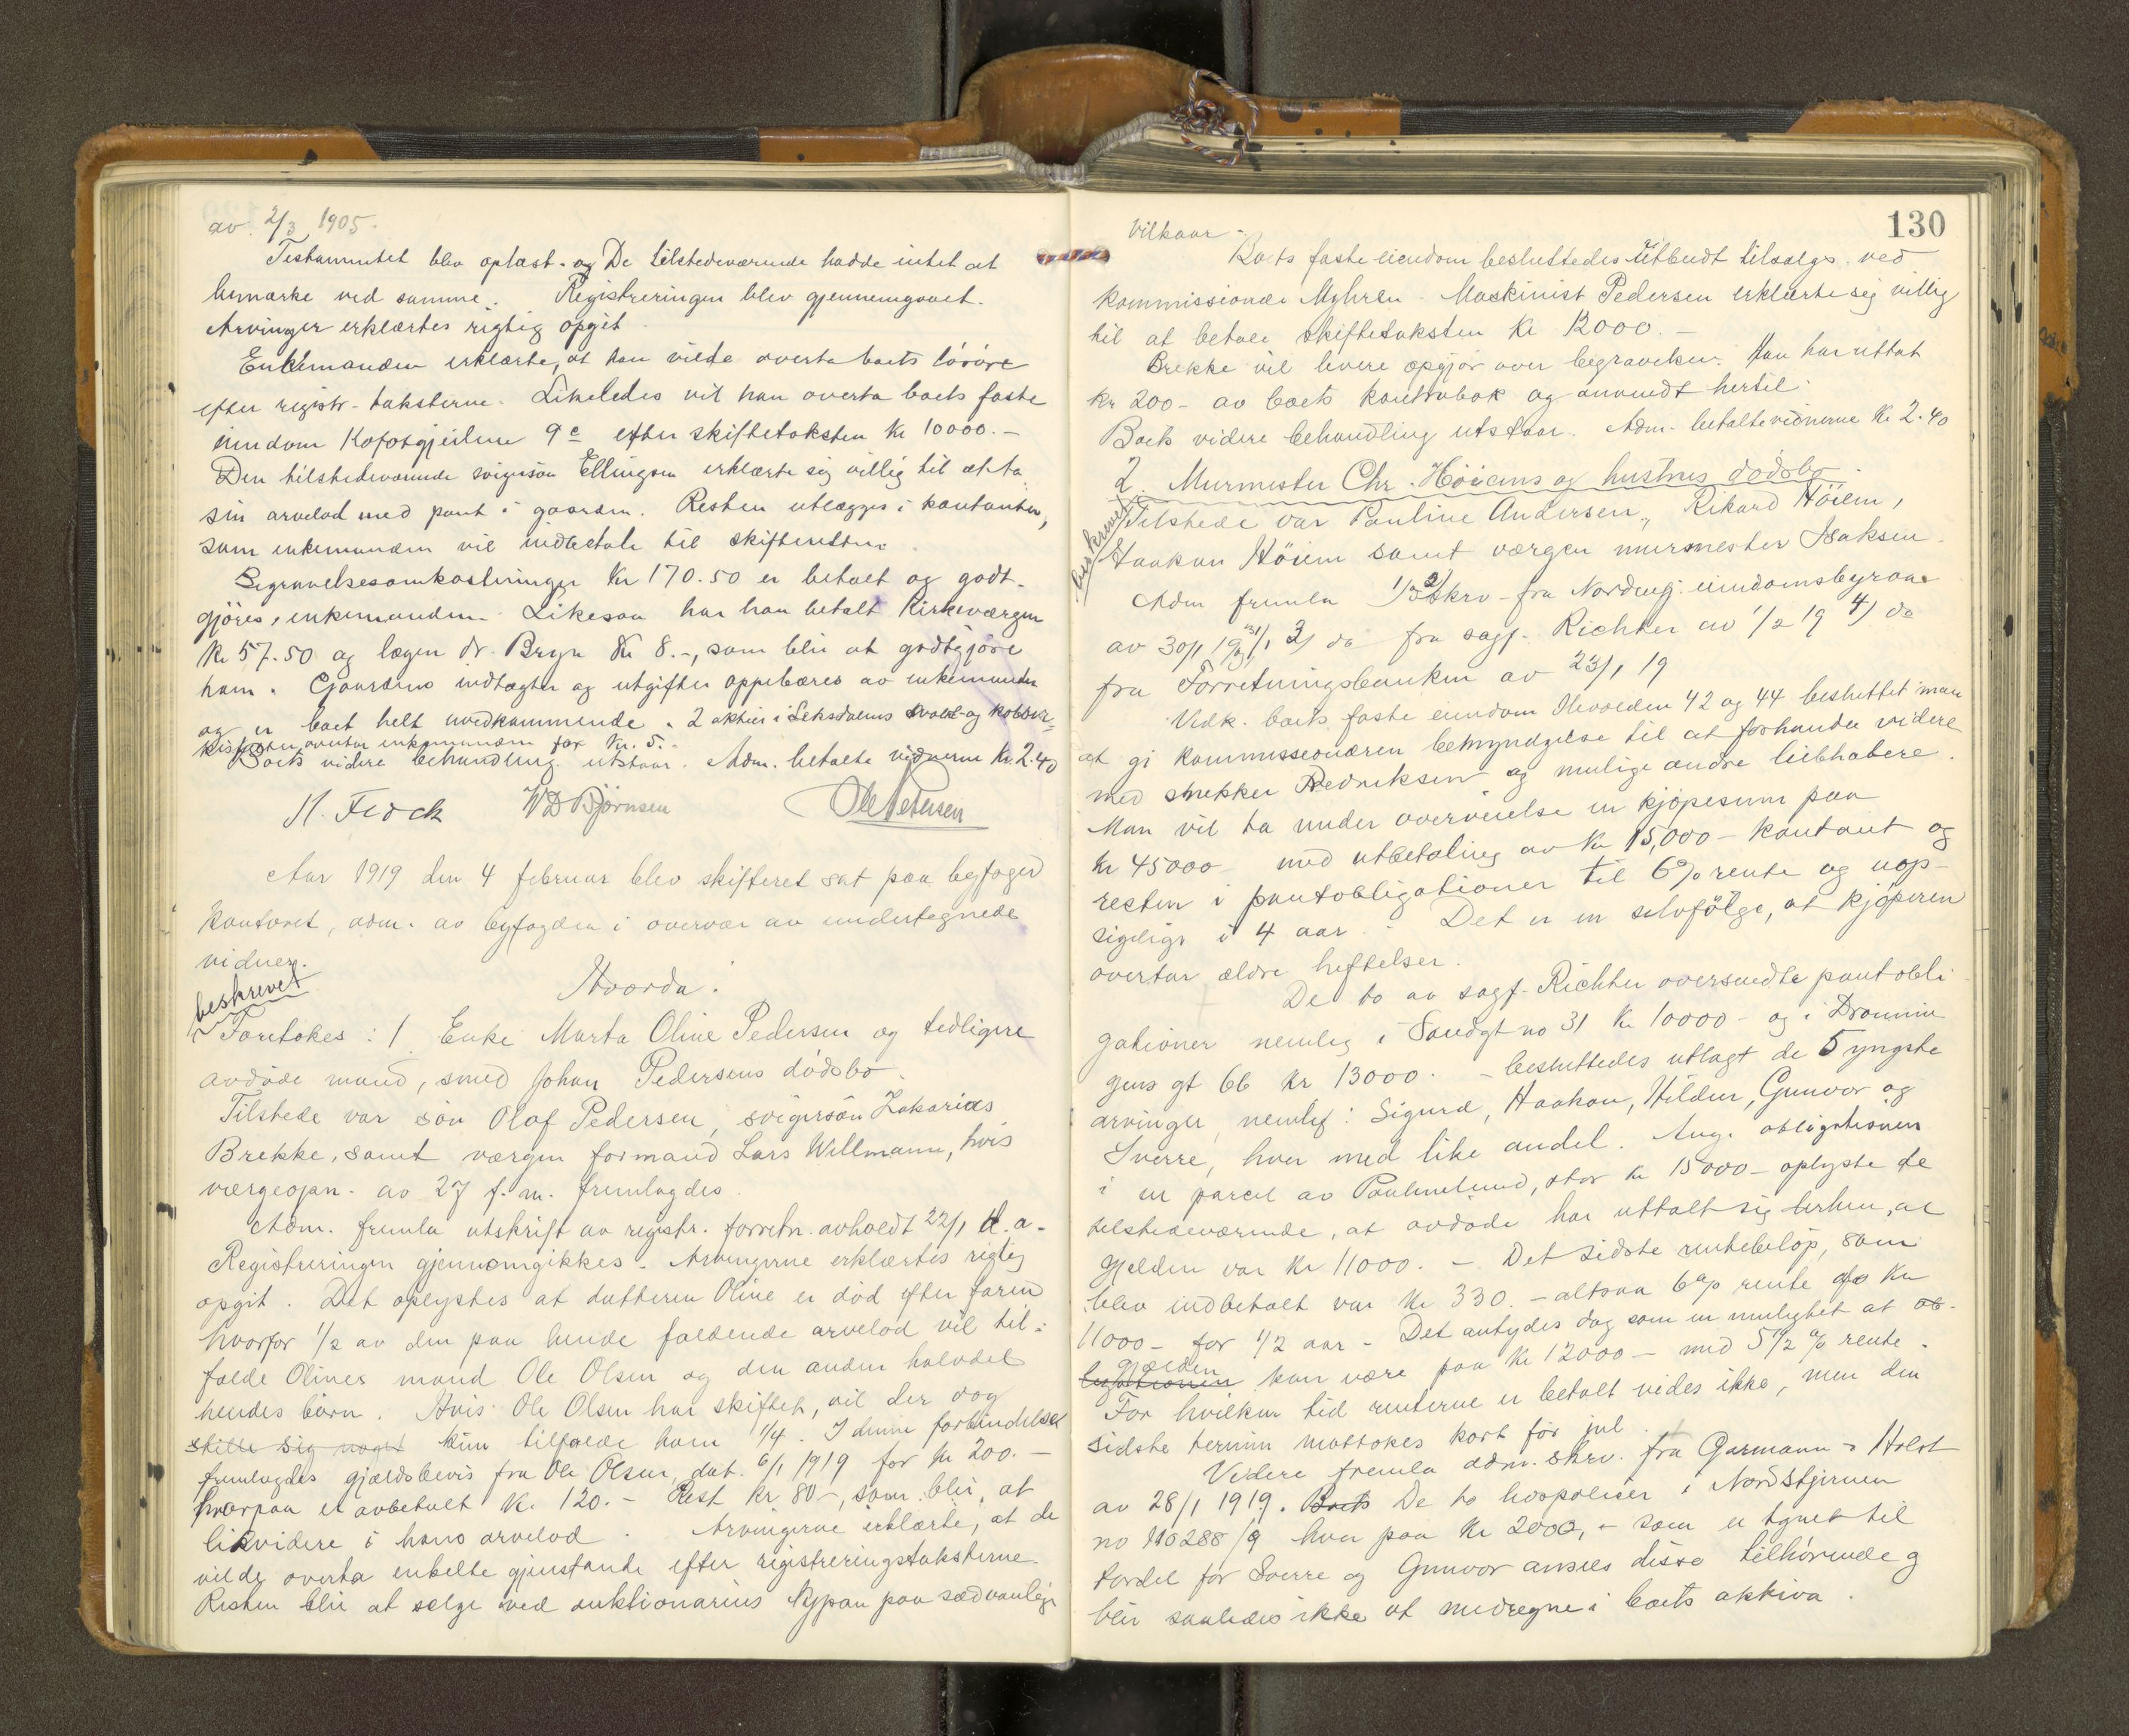 av 2/3 1905.
Testamentet blev oplæst. og De tilstedeværende hadde intet at
bemærke ved samme. Registreringen blev gjennemgaaet.
Arvinger erklærtes rigtig opgit.
Enkemanden erklærte, at han vilde overta boets lösöre
efter registr. taksterne. Likeledes vil han overta boets faste
eiendom Kofotgjeilene 9e efter skiftetaksten Kr 10000.-
Den tilstedeværende svigersön Ellingsen erklærte sig villig til at ta
sin arvelod med pant i gaarden. Resten utlægges i kontanter,
som enkemanden vil indbetale til skifteretten.
Begravelsesomkostninger Kr 170.50 er betalt og godt-
gjöres enkemanden. Likesaa har han betalt Kirkeværgen
Kr 57.50 og lægen dr. Bryn Kr 8.-, som blir at godtgjöre
ham. Gaardens indtægter og utgifter oppebæres av enkemanden
og er boet helt uvedkommende. 2 aktier i Leksdalens svovel- og kobber-
kisgruber overtar enkemanden for Kr. 5.-
Boets videre behandling utstaar. Adm. betalte vidnerne Kr. 2.40
H. Flock WD Björnsen Ole Petersen
Aar 1919 den 4 februar blev skifteret sat paa byfoged
kontoret, adm. av byfogden i overvær av undertegnede
vidner.
beskrevet
Hvorda:
Foretokes: 1. Enke Marta Oline Pedersen og tidligere
avdöde mand, smed Johan Pedersens dödsbo.
Tilstede var sön Olaf Pedersen, svigersön Zakarias
Brekke, samt værgen formand Lars Willmann, hvis
værgeopn. av 27 f. m. fremlagdes.
Adm. fremla utskrift av registr. forretn. avholdt 22/1 d. a.
Registreringen gjennemgikkes. Arvingerne erklærtes rigtig
opgit. Det oplystes at datteren Oline er död efter faren
hvorfor 1/2 av den paa hende faldende arvelod vil til-
falde Olines mand Ole Olsen og den anden halvdel
hendes börn. Hvis Ole Olsen har skiftet, vil der dog
stille sig noget kun tilfalde ham 1/4. I denne forbindelse
fremlagdes gjældsbevis fra Ole Olsen, dat. 6/1 1919 for Kr 200.-
hvorpaa er avbetalt Kr. 120.- Rest Kr 80-, som blir at
likvidere i hans arvelod. Arvingerne erklærte, at de
vilde overta enkelte gjenstande efter registreringstaksterne.
Resten blir at sælge ved auktionarius Nypan paa sædvanlige
130
vilkaar.
Boets faste eiendom besluttedes utbudt tilsalgs ved
kommissionær Myhren. Maskinist Pedersen erklærte sig villig
til at betale skiftetaksten Kr 12000.-
Brekke vil levere opgjör over begravelsen. Han har uttat
Kr 200- av boets kontrabok og anvendt hertil.
Boets videre behandling utstaar. Adm. betalte vidnerne Kr 2.40
2. Murmester Chr. Höiems og hustrus dödsbo.
beskrevet
Tilstede var Pauline Andersen, Rikard Höiem,
Haakon Höiem samt værgen murmester Isaksen.
Adm fremla 1/ skrv. fra Nordenfj. eiendomsbyraa
av 30/1 19 3/ do fra sagf. Richter av 1/2 19 4/ do
fra Forretningsbanken av 23/1 19
Vedk. boets faste eiendom 42 og 44 besluttet man
at gi kommissionæren bemyndigelse til at forhandle videre
med snekker Fredriksen og mulige andre liebhabere.
Man vil ta under overveielse en kjöpesum paa
Kr 45000 med utbetaling av Kr 15,000- kontant og
resten i pantobligationer til 6% rente og uop-
sigelige i 4 aar. Det er en selvfölge, at kjöperen
overtar ældre heftelser.
De to av sagf. Richter oversendte pantobli
gationer nemlig i Sandgt no 31 Kr 10000- og i Dronnin
gens gt 66 Kr 13000.- besluttedes utlagt de 5 yngste
arvinger, nemlig: Sigurd, Haakon, Hildur, Gunvor og
Sverre, hver med like andel. Ang. obligationen
i en parcel av Paulinelund, stor Kr 15000- oplyste de
tilstedeværende, at avdöde har uttalt sig derhen, at
gjelden var Kr 11000.- Det sidste rentebelöp, som
blev indbetalt var Kr 330.- altsaa 6% rente av Kr
11000- for 1/2 aar- Det antydes dog som en mulighet at ob-
ligationen gjælden kan være paa Kr 12000- med 5 1/2 % rente.
For hvilken tid renterne er betalt vides ikke, men den
sidste termin mottokes kort för jul.
Videre fremla adm. skrv. fra Garmann & Holst
av 28/1 1919. Boets De to livspoliser i Nordstjernen
no 110288/9 hver paa Kr 2000,- som er tegnet til
fordel for Sverre og Gunvor ansees disse tilhörende og
blir saaledes ikke at medregne i boets aktiva.